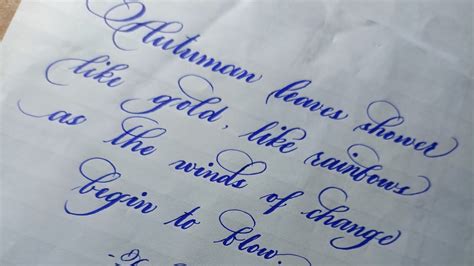 Autuman leaves shower
like gold, like rainbows
as the winds of change
begin to blow.